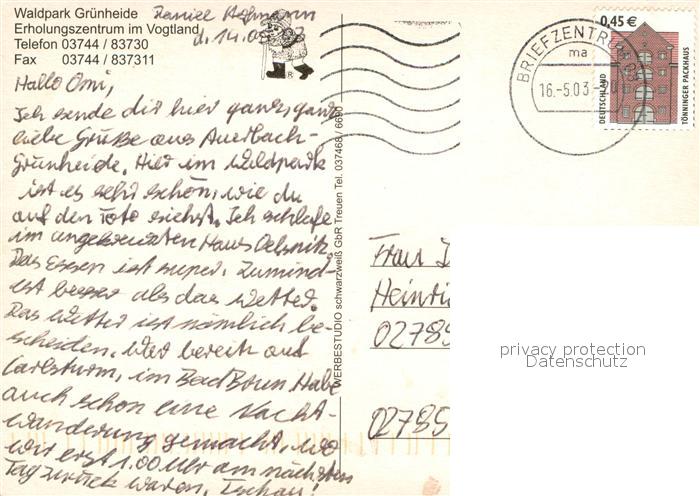 Waldpark Grünheide
Erholungszentrum im Vogtland
Telefon 03744 / 83730
Fax 03744 / 837311
Daniel Hofmann
d. 14.05.
Hallo Omi,
Ich sende dir hier ganz, ganz
liebe Grüße aus Auerbach-
Grünheide. Hier im Waldpark
ist es sehr schön, wie du
auf den Foto siehst. Ich schlafe
im angekreuzten Haus Oelsnitz.
Das Essen ist super. Zumind-
est besser als das Wetter.
Das Wetter ist nämlich be-
scheiden. War bereits auf
im Bad Brun Habe
auch schon eine Nacht-
wanderung gemacht, wo
wir erst 1.00 Uhr am nächsten
Tag zurück waren. Tschau!
WERBESTUDIO schwarzweiß GbR Treuen Tel. 037468 / 6690
BRIEFZENTRUM
ma
16.-5.03
0,45 €
DEUTSCHLAND
TÖNNINGER PACKHAUS
Frau
Heinri
02785
02785
privacy protection
Datenschutz